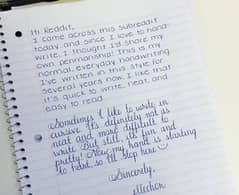 Hi Reddit,
I came across this subreddit
today and since I love to hand-
write, I thought I'd share my
own penmanship! This is my
normal everyday handwriting.
I've written in this style for
several years now. I like that
it's quick to write, neat, and
easy to read.
Sometimes I like to write in
cursive. It's definitely not as
neat and more difficult to
write. But still, it's fun and
pretty! Now my hand is starting
to hurt, so I'll stop here.
Sincerely,